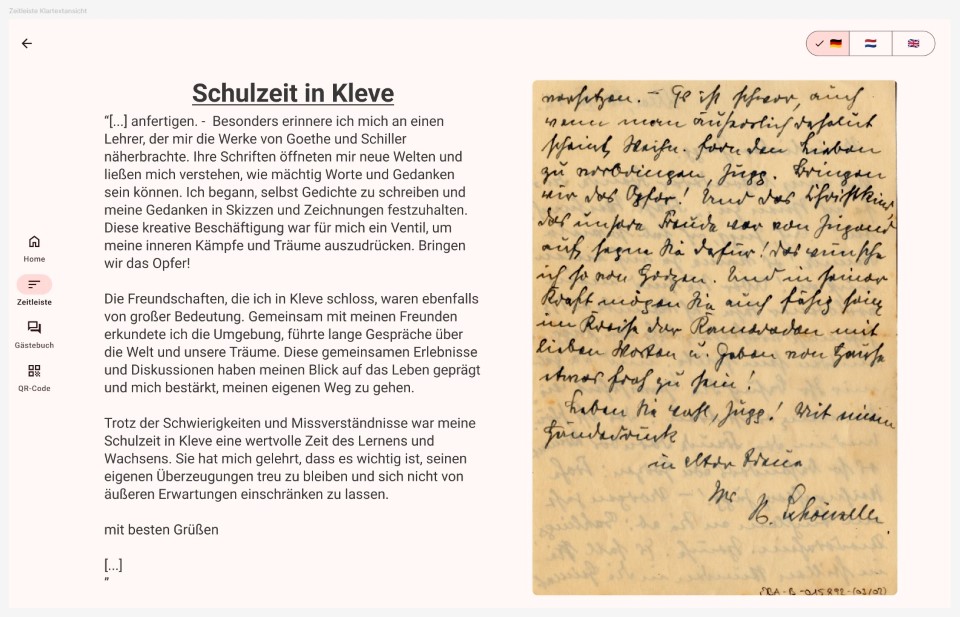 Zeitleiste Klartextansicht
Schulzeit in Kleve
“[...] anfertigen. - Besonders erinnere ich mich an einen
Lehrer, der mir die Werke von Goethe und Schiller
näherbrachte. Ihre Schriften öffneten mir neue Welten und
ließen mich verstehen, wie mächtig Worte und Gedanken
sein können. Ich begann, selbst Gedichte zu schreiben und
meine Gedanken in Skizzen und Zeichnungen festzuhalten.
Diese kreative Beschäftigung war für mich ein Ventil, um
meine inneren Kämpfe und Träume auszudrücken. Bringen
wir das Opfer!
Die Freundschaften, die ich in Kleve schloss, waren ebenfalls
von großer Bedeutung. Gemeinsam mit meinen Freunden
erkundete ich die Umgebung, führte lange Gespräche über
die Welt und unsere Träume. Diese gemeinsamen Erlebnisse
und Diskussionen haben meinen Blick auf das Leben geprägt
und mich bestärkt, meinen eigenen Weg zu gehen.
Trotz der Schwierigkeiten und Missverständnisse war meine
Schulzeit in Kleve eine wertvolle Zeit des Lernens und
Wachsens. Sie hat mich gelehrt, dass es wichtig ist, seinen
eigenen Überzeugungen treu zu bleiben und sich nicht von
äußeren Erwartungen einschränken zu lassen.
mit besten Grüßen
[...]
”
Home
Zeitleiste
Gästebuch
QR-Code
. – Es ist schwer, auch
wenn man äußerlich resolut
scheint, Weihn. fern den Lieben
zu verbringen, Jupp. Bringen
wir das Opfer! Und das Christkind,
das unsere Freude war von Jugend
auf, segne Sie dafür! Das wünsche
ich so von Herzen. Und in seiner
Kraft mögen Sie auch fähig sein,
im Kreise der Kameraden mit
lieben Worten u. Gaben von Hause
etwas froh zu sein!
Leben Sie wohl, Jupp! Mit einem
Händedruck
in alter Treue
Ihr